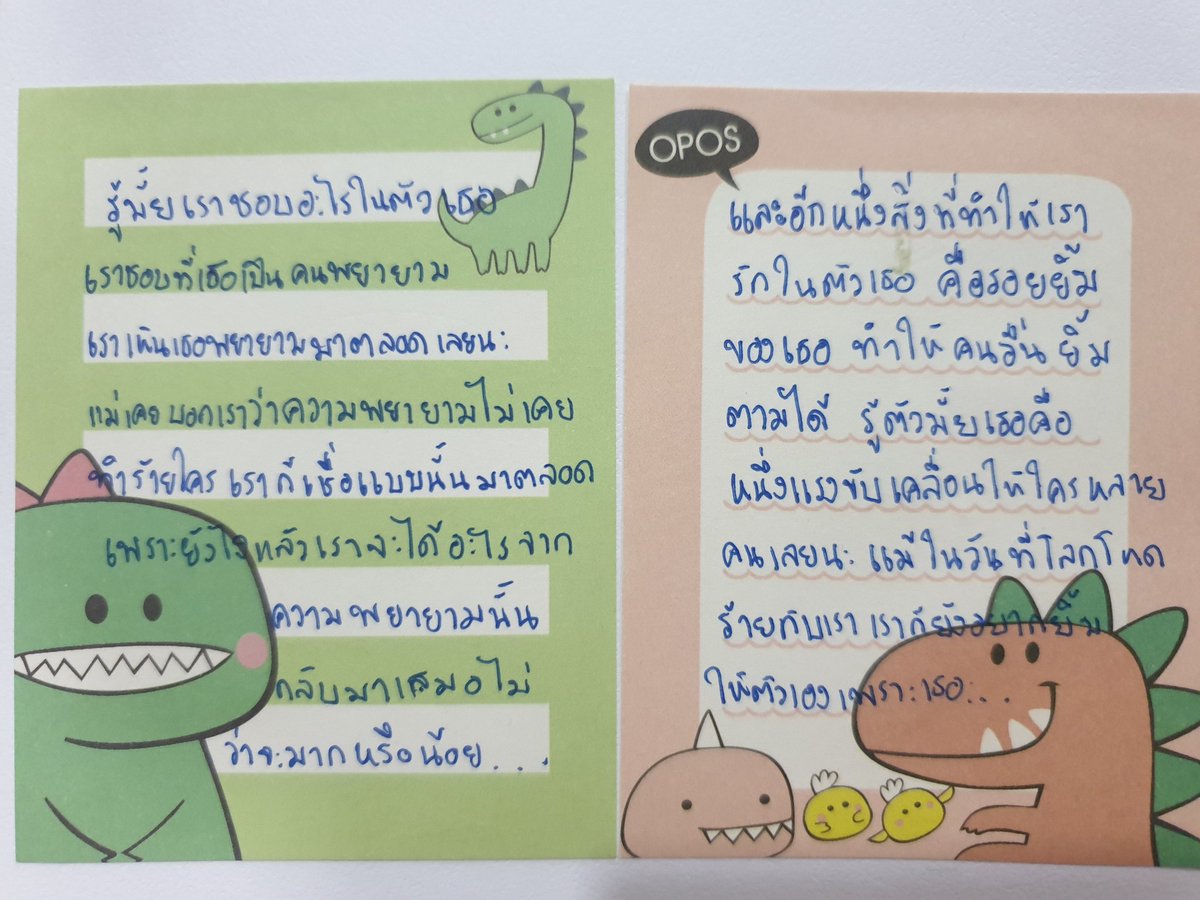 รู้มั้ยเราชอบอะไรในตัวเธอ
เราชอบที่เธอเป็นคนพยายาม
เราเห็นเธอพยายามมาตลอดเลยนะ
แม่เคยบอกเราว่าความพยายามไม่เคย
ทำร้ายใคร เราก็เชื่อแบบนั้นมาตลอด
เพราะยังไงแล้วเราจะได้อะไรจาก
ความพยายามนั้น
กลับมาเสมอไม่
ว่าจะมากหรือน้อย...
OPOS
และอีกหนึ่งสิ่งที่ทำให้เรา
รักในตัวเธอ คือรอยยิ้ม
ของเธอ ทำให้คนอื่นยิ้ม
ตามได้ รู้ตัวมั้ยเธอคือ
หนึ่งแรงขับเคลื่อนให้ใครหลาย
คนเลยนะ แม้ในวันที่โลกโหด
ร้ายกับเรา เราก็ยังอยากยิ้ม
ให้ตัวเองเพราะเธอ...